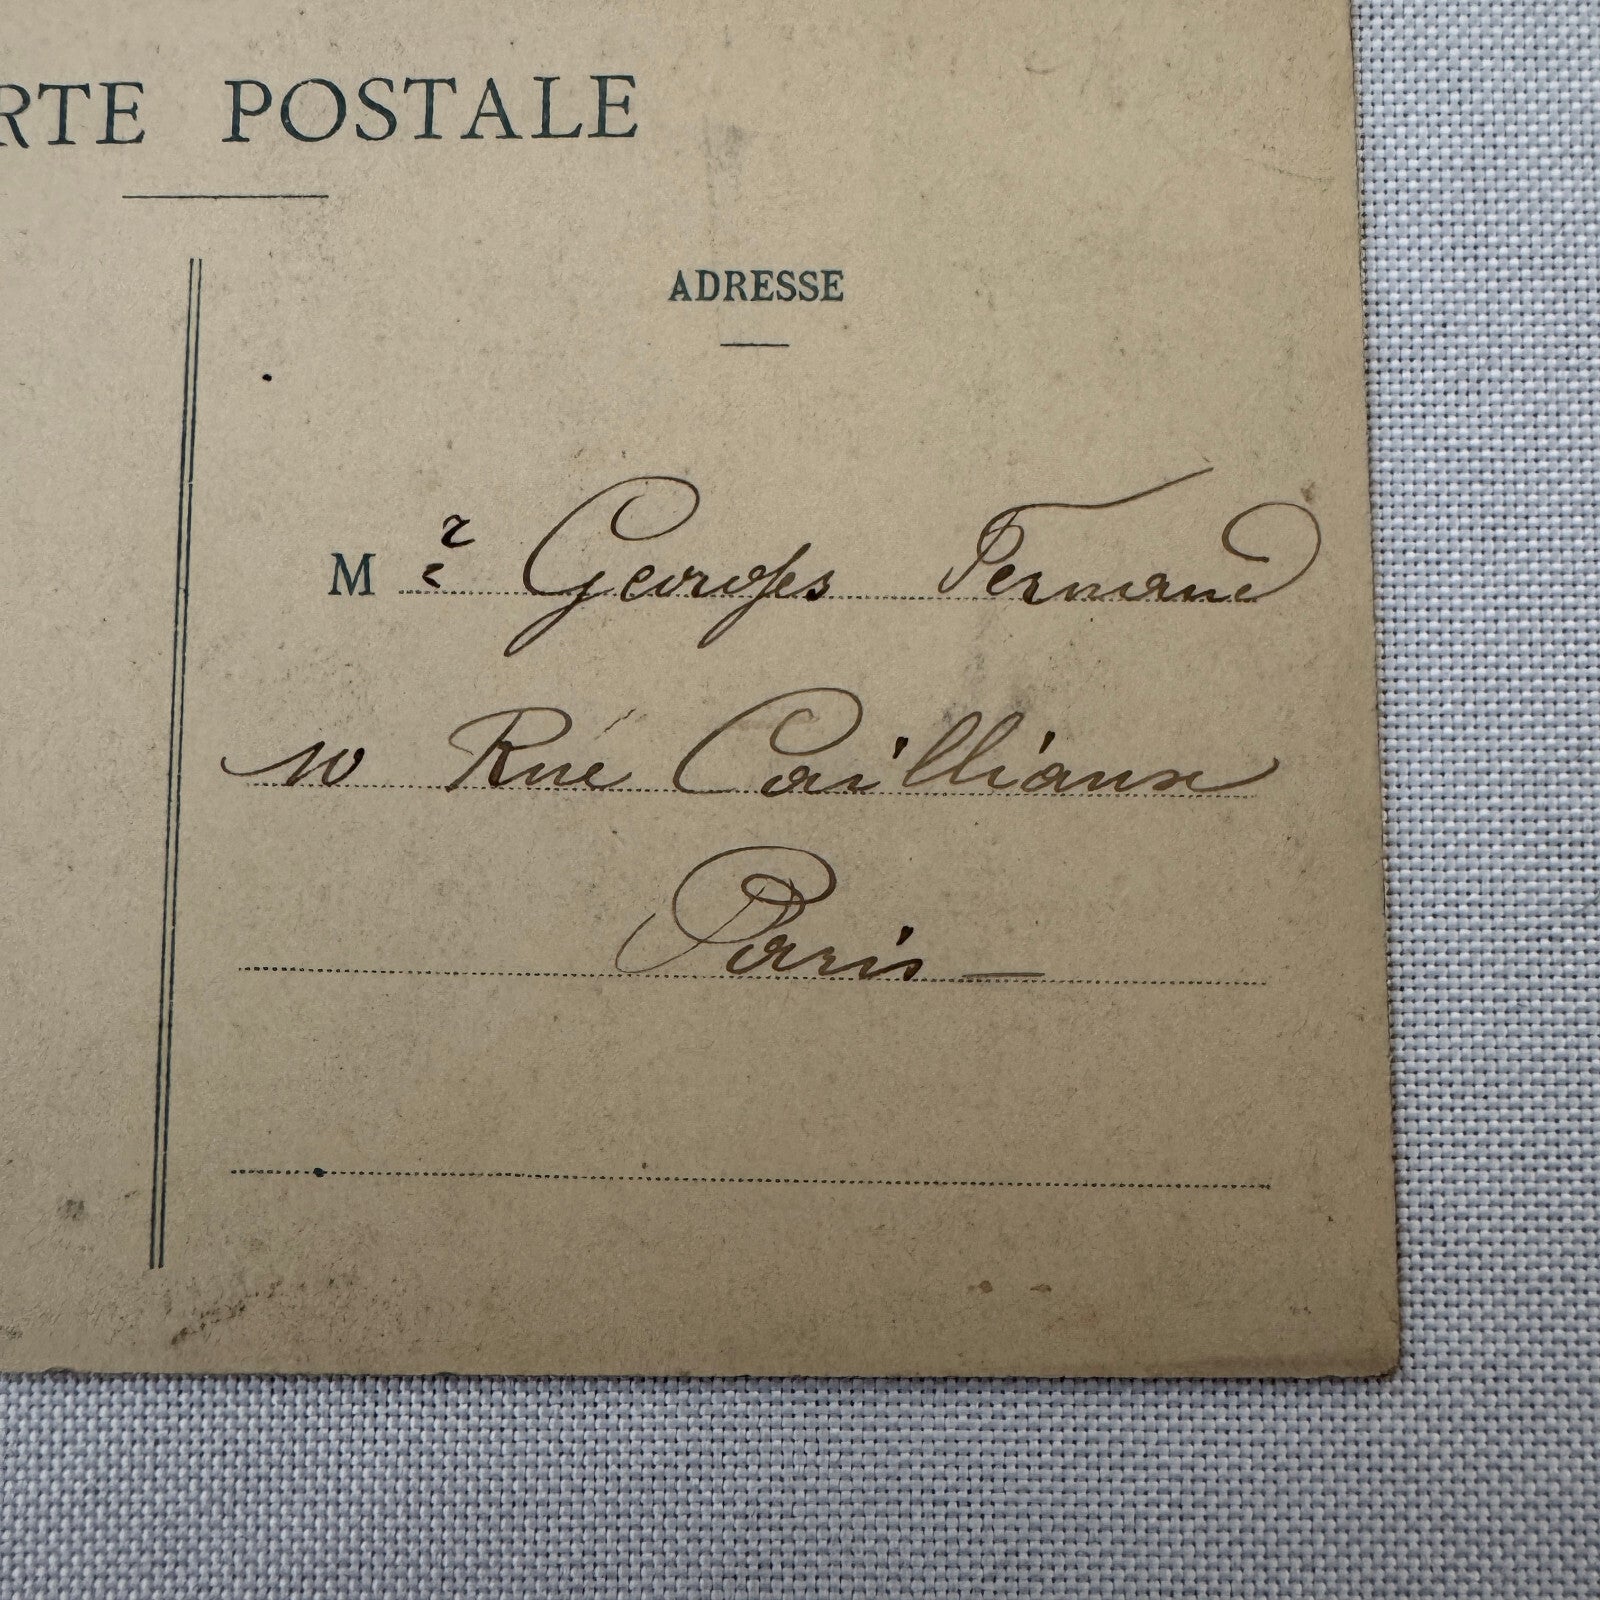 RTE POSTALE
ADRESSE
Mr Georges Fernand
10 Rue Cailliaux
Paris —